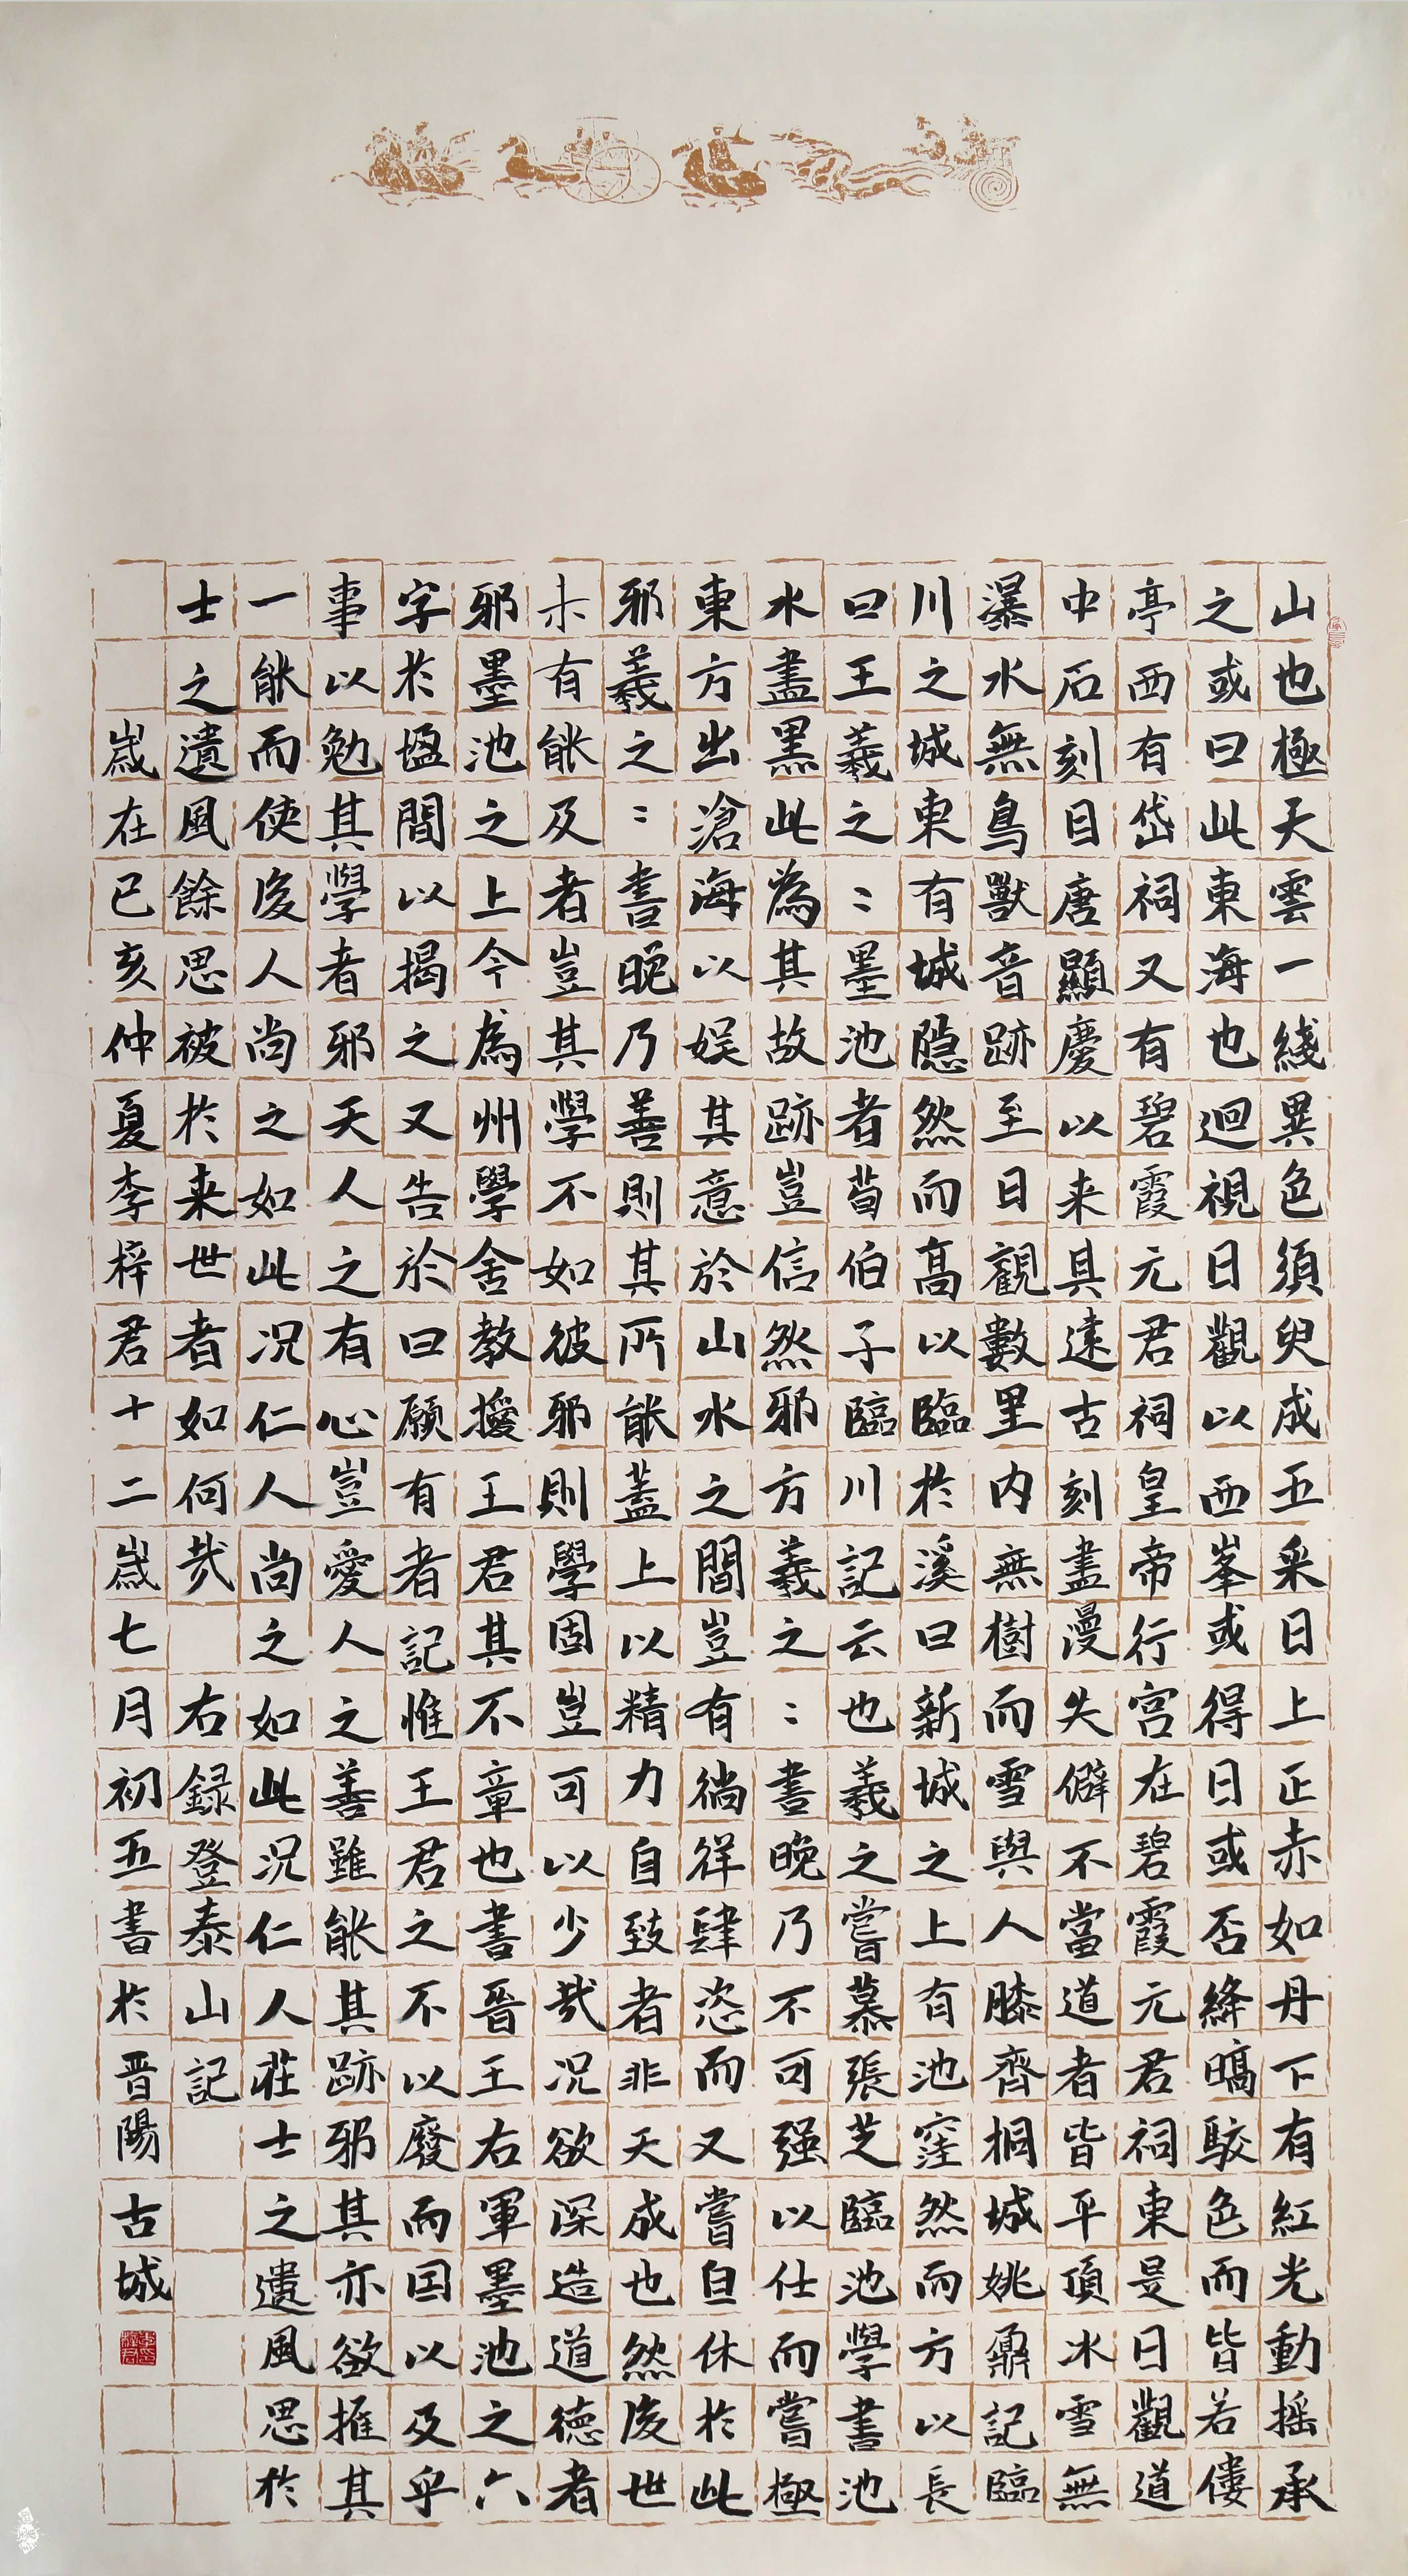 山也極天雲一綫異色須臾成五采日上正赤如丹下有紅光動摇承
之或曰此東海也迴視日觀以西峯或得日或否絳皜駁色而皆若僂
亭西有岱祠又有碧霞元君祠皇帝行宫在碧霞元君祠東是日觀道
中石刻目唐顯慶以来具遠古刻盡漫失僻不當道者皆平頂冰雪無
瀑水無鳥獸音跡至日觀數里内無樹而雪與人膝齊桐城姚鼐記臨
川之城東有城隐然而高以臨於溪曰新城之上有池窪然而方以長
曰王羲之〻墨池者荀伯子臨川記云也羲之嘗慕張芝臨池學書池
水盡黑此為其故跡豈信然邪方羲之〻書晚乃不可强以仕而嘗極
東方出滄海以娱其意於山水之間豈有徜徉肆恣而又嘗自休於此
邪羲之〻書晚乃善則其所能蓋上以精力自致者非天成也然後世
未有能及者豈其學不如彼邪則學固豈可以少哉况欲深造道德者
邪墨池之上今為州學舍教授王君其不章也書晋王右軍墨池之六
字於楹間以揭之又告於曰願有者記惟王君之不以廢而因以及乎
事以勉其學者邪天人之有心豈愛人之善雖能其跡邪其亦欲推其
一能而使後人尚之如此况仁人尚之如此况仁人莊士之遺風思於
士之遺風餘思被於来世者如何哉 右録登泰山記
歲在己亥仲夏李梓君十二歲七月初五書於晋陽古城